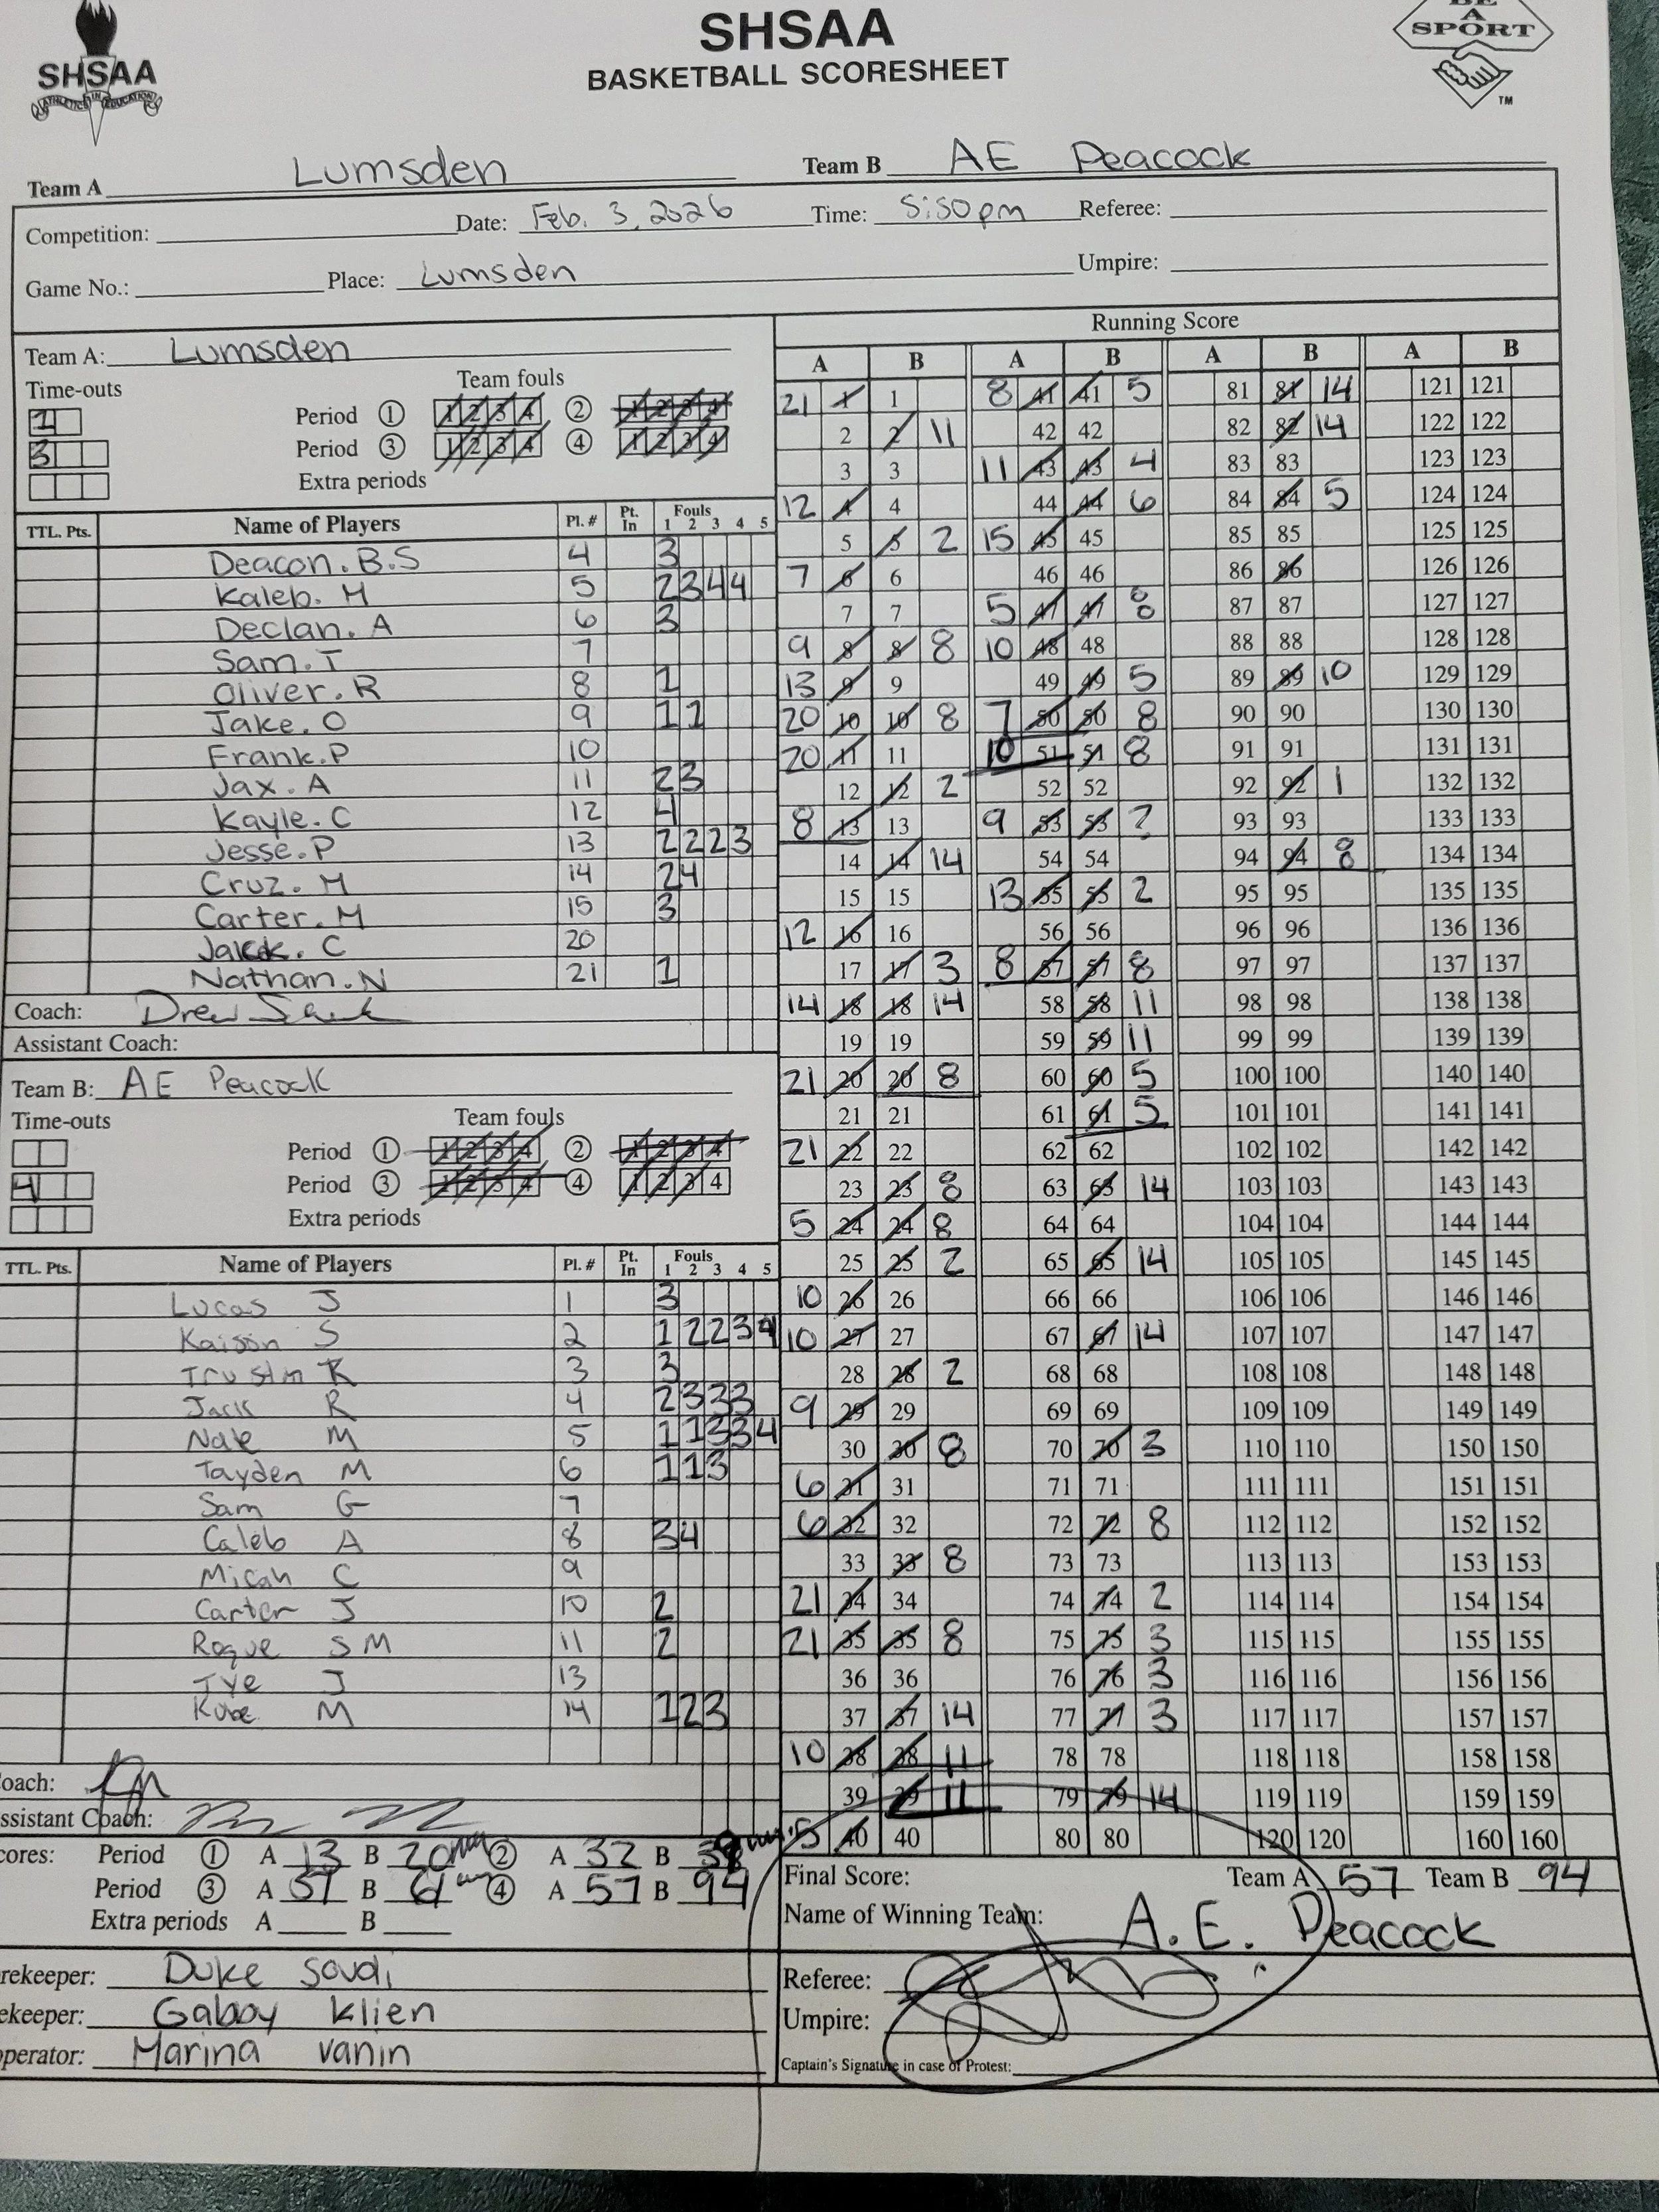 SHSAA
BASKETBALL SCORESHEET
SHSAA
ATHLETICS IN EDUCATION
BE
A
SPORT
TM
Team A Lumsden Team B AE Peacock
Competition: Date: Feb. 3, 2026 Time: 5:50pm Referee:
Game No.: Place: Lumsden Umpire:
Team A: Lumsden
Time-outs Team fouls
1 Period 1 1 2 3 4 2 1 2 3 4
3 Period 3 1 2 3 4 4 1 2 3 4
Extra periods
TTL. Pts. Name of Players Pl. # Pt. In Fouls 1 2 3 4 5
Deacon. B.S 4 3
Kaleb. M 5 2 3 4 4
Declan. A 6 3
Sam. T 7
Oliver. R 8 1
Jake. O 9 1 1
Frank. P 10
Jax. A 11 2 3
Kayle. C 12 4
Jesse. P 13 2 2 2 3
Cruz. M 14 2 4
Carter. M 15 3
C 20
Nathan. N 21 1
Coach: Drew
Assistant Coach:
Team B: AE Peacock
Time-outs Team fouls
Period 1 1 2 3 4 2 1 2 3 4
4 Period 3 1 2 3 4 4 1 2 3 4
Extra periods
TTL. Pts. Name of Players Pl. # Pt. In Fouls 1 2 3 4 5
Lucas J 1 3
Kaison S 2 1 2 2 3 4
K 3 3
Jack R 4 2 3 3 3
M 5 1 1 3 3 4
Tayden M 6 1 1 3
Sam G 7
Caleb A 8 3 4
Micah C 9
Carter J 10 2
Roque S M 11 2
Tye J 13
M 14 1 2 3
oach:
ssistant Coach:
cores: Period 1 A 13 B 20 2 A 32 B
Period 3 A 57 B 61 4 A 57 B 94
Extra periods A B
rekeeper: Duke Soudi
ekeeper: Gabby Klien
perator: Marina Vanin
Running Score
A B A B A B A B
21 1 1 8 41 41 5 81 81 14 121 121
2 2 11 42 42 82 82 14 122 122
3 3 11 43 43 4 83 83 123 123
12 4 4 44 44 6 84 84 5 124 124
5 5 2 15 45 45 85 85 125 125
7 6 6 46 46 86 86 126 126
7 7 5 47 47 8 87 87 127 127
9 8 8 8 10 48 48 88 88 128 128
13 9 9 49 49 5 89 89 10 129 129
20 10 10 8 7 50 50 8 90 90 130 130
20 11 11 10 51 51 8 91 91 131 131
12 12 2 52 52 92 92 1 132 132
8 13 13 9 53 53 ? 93 93 133 133
14 14 14 54 54 94 94 8 134 134
15 15 13 55 55 2 95 95 135 135
12 16 16 56 56 96 96 136 136
17 17 3 8 57 57 8 97 97 137 137
14 18 18 14 58 58 11 98 98 138 138
19 19 59 59 11 99 99 139 139
21 20 20 8 60 60 5 100 100 140 140
21 21 61 61 5 101 101 141 141
21 22 22 62 62 102 102 142 142
23 23 8 63 63 14 103 103 143 143
5 24 24 8 64 64 104 104 144 144
25 25 2 65 65 14 105 105 145 145
10 26 26 66 66 106 106 146 146
10 27 27 67 67 14 107 107 147 147
28 28 2 68 68 108 108 148 148
9 29 29 69 69 109 109 149 149
30 30 8 70 70 3 110 110 150 150
6 31 31 71 71 111 111 151 151
6 32 32 72 72 8 112 112 152 152
33 33 8 73 73 113 113 153 153
21 34 34 74 74 2 114 114 154 154
21 35 35 8 75 75 3 115 115 155 155
36 36 76 76 3 116 116 156 156
37 37 14 77 77 3 117 117 157 157
10 38 38 11 78 78 118 118 158 158
39 39 11 79 79 14 119 119 159 159
5 40 40 80 80 120 120 160 160
Final Score: Team A 57 Team B 94
Name of Winning Team: A.E. Peacock
Referee:
Umpire:
Captain's Signature in case of Protest: